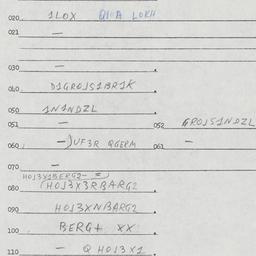 020 1LOX QIIA LOKH
021 —
030 —
040 D1GROJS1BR1K
050 1N1NDZL
051 — 052 GROJS1NDZL
060 —)UF3R QGERM 061 —
070 —
HO13X1BERG2- =
080 (HO13X3RBARG2
090 HO13XNBARG2
100 BERG+ XX
110 — Q HO13X1